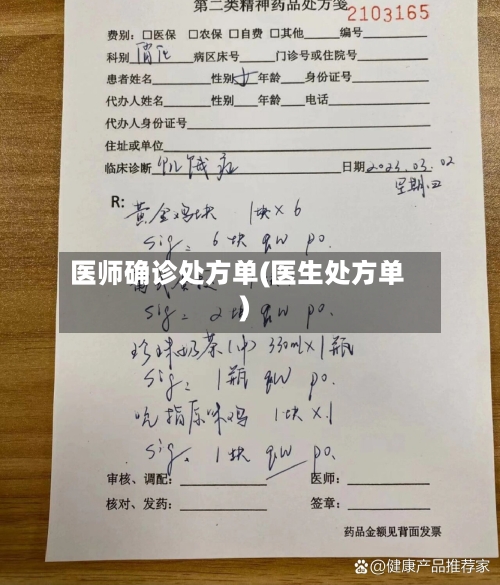 第二类精神药品处方笺
2103165
费别：□医保 □农保 □自费 □其他 编号
科别 胃 病区床号 门诊号或住院号
患者姓名 性别 女 年龄 身份证号
代办人姓名 性别 年龄 电话
代办人身份证号
住址或单位
临床诊断 饥饿症 日期 2023.03.02
星期四
R:
黄金鸡块 1块×6
Sig: 6块 qw po.
医师确诊处方单(医生处方单
)
Sig: 2块 qw po.
珍珠奶茶(中) 330ml×1瓶
Sig: 1瓶 qw po.
吮指原味鸡 1块×1
Sig. 1块 qw po.
审核、调配: 医师:
核对、发药: 签章:
药品金额见背面发票
@健康产品推荐家